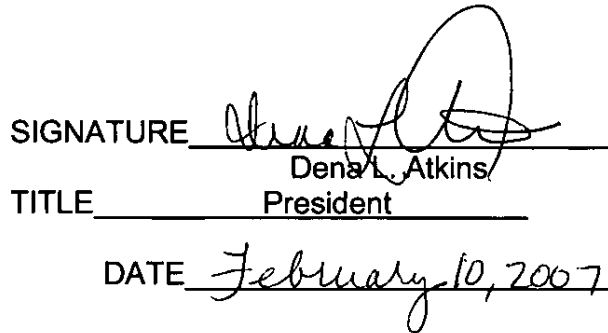 SIGNATURE
Dena L. Atkins
TITLE President
DATE February 10, 2007